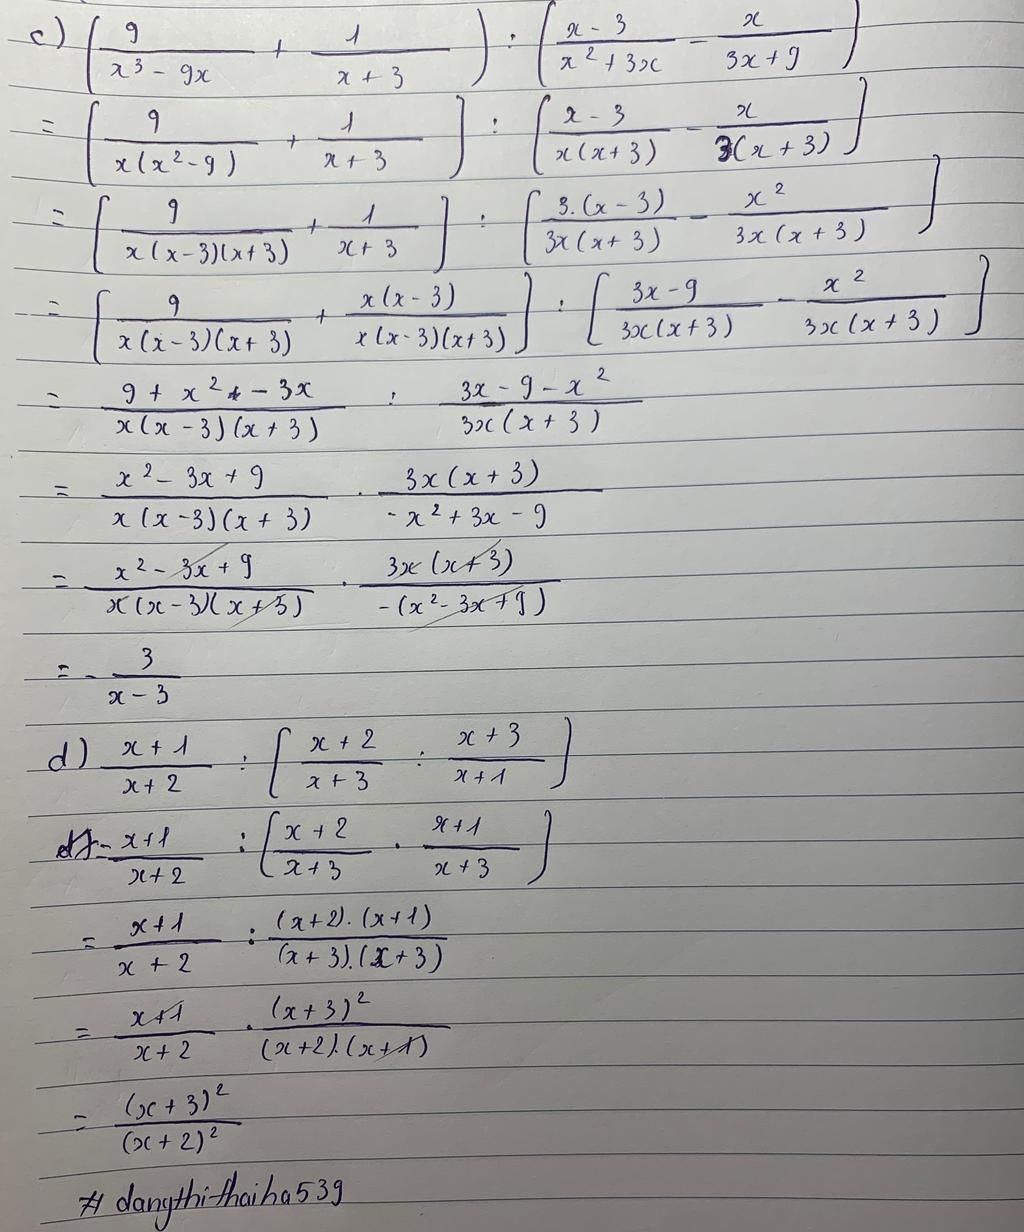 c) (9/(x³ - 9x) + 1/(x + 3)) : (x - 3)/(x² + 3x) - x/(3x + 9))
= [9/(x(x² - 9)) + 1/(x + 3)] : [(x - 3)/(x(x + 3)) - x/(3(x + 3))]
= [9/(x(x-3)(x+3)) + 1/(x+3)] : [3.(x - 3)/(3x(x + 3)) - x²/(3x(x + 3))]
= [9/(x(x-3)(x+3)) + x(x-3)/(x(x-3)(x+3))] : [(3x - 9)/(3x(x+3)) - x²/(3x(x+3))]
= (9 + x² - 3x)/(x(x - 3)(x + 3)) : (3x - 9 - x²)/(3x(x + 3))
= (x² - 3x + 9)/(x(x-3)(x + 3)) . 3x(x + 3)/(-x² + 3x - 9)
= (x² - 3x + 9)/(x(x-3)(x+3)) . 3x(x+3)/(-(x² - 3x + 9))
= - 3/(x - 3)
d) (x + 1)/(x + 2) : [(x + 2)/(x + 3) : (x + 3)/(x + 1)]
= (x+1)/(x+2) : [(x + 2)/(x+3) . (x+1)/(x+3)]
= (x+1)/(x + 2) : (x+2).(x+1)/((x + 3).(x+3))
= (x+1)/(x+2) . (x+3)²/((x+2).(x+1))
= (x + 3)²/(x + 2)²
# dangthi-thaiha539